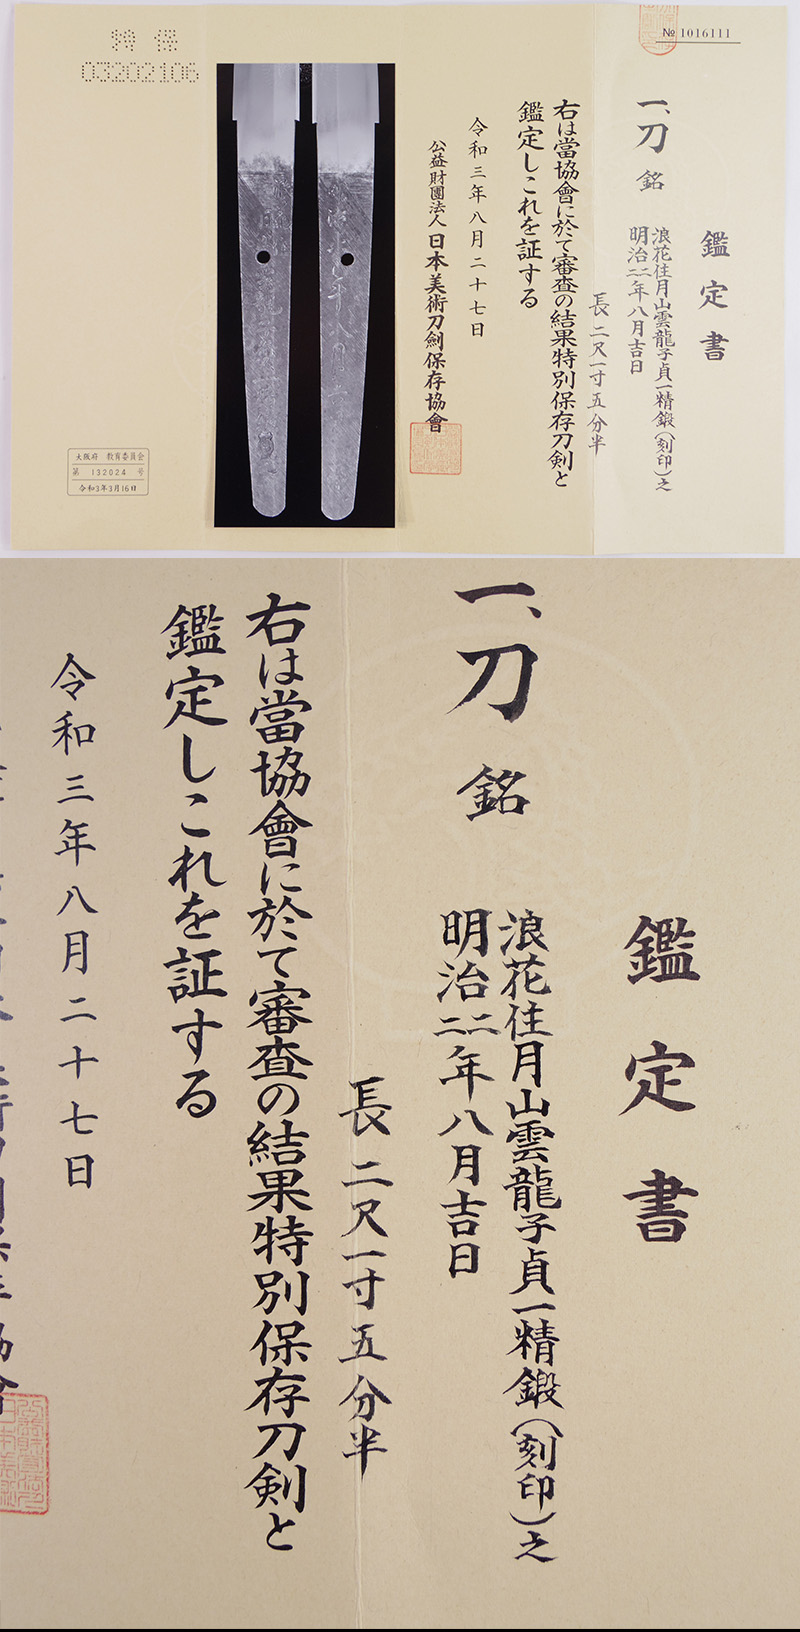 № 1016111
鑑定書
一、刀 銘
浪花住月山雲龍子貞一精鍛(刻印)之
明治二二年八月吉日
長 二尺一寸五分半
右は當協會に於て審査の結果特別保存刀剣と
鑑定しこれを証する
令和三年八月二十七日
公益財團法人日本美術刀劍保存協會
特 保
03202106
大阪府 教育委員会
第 132024 号
令和3年3月16日
鑑定書
一、刀 銘
浪花住月山雲龍子貞一精鍛(刻印)之
明治二二年八月吉日
長 二尺一寸五分半
右は當協會に於て審査の結果特別保存刀剣と
鑑定しこれを証する
令和三年八月二十七日